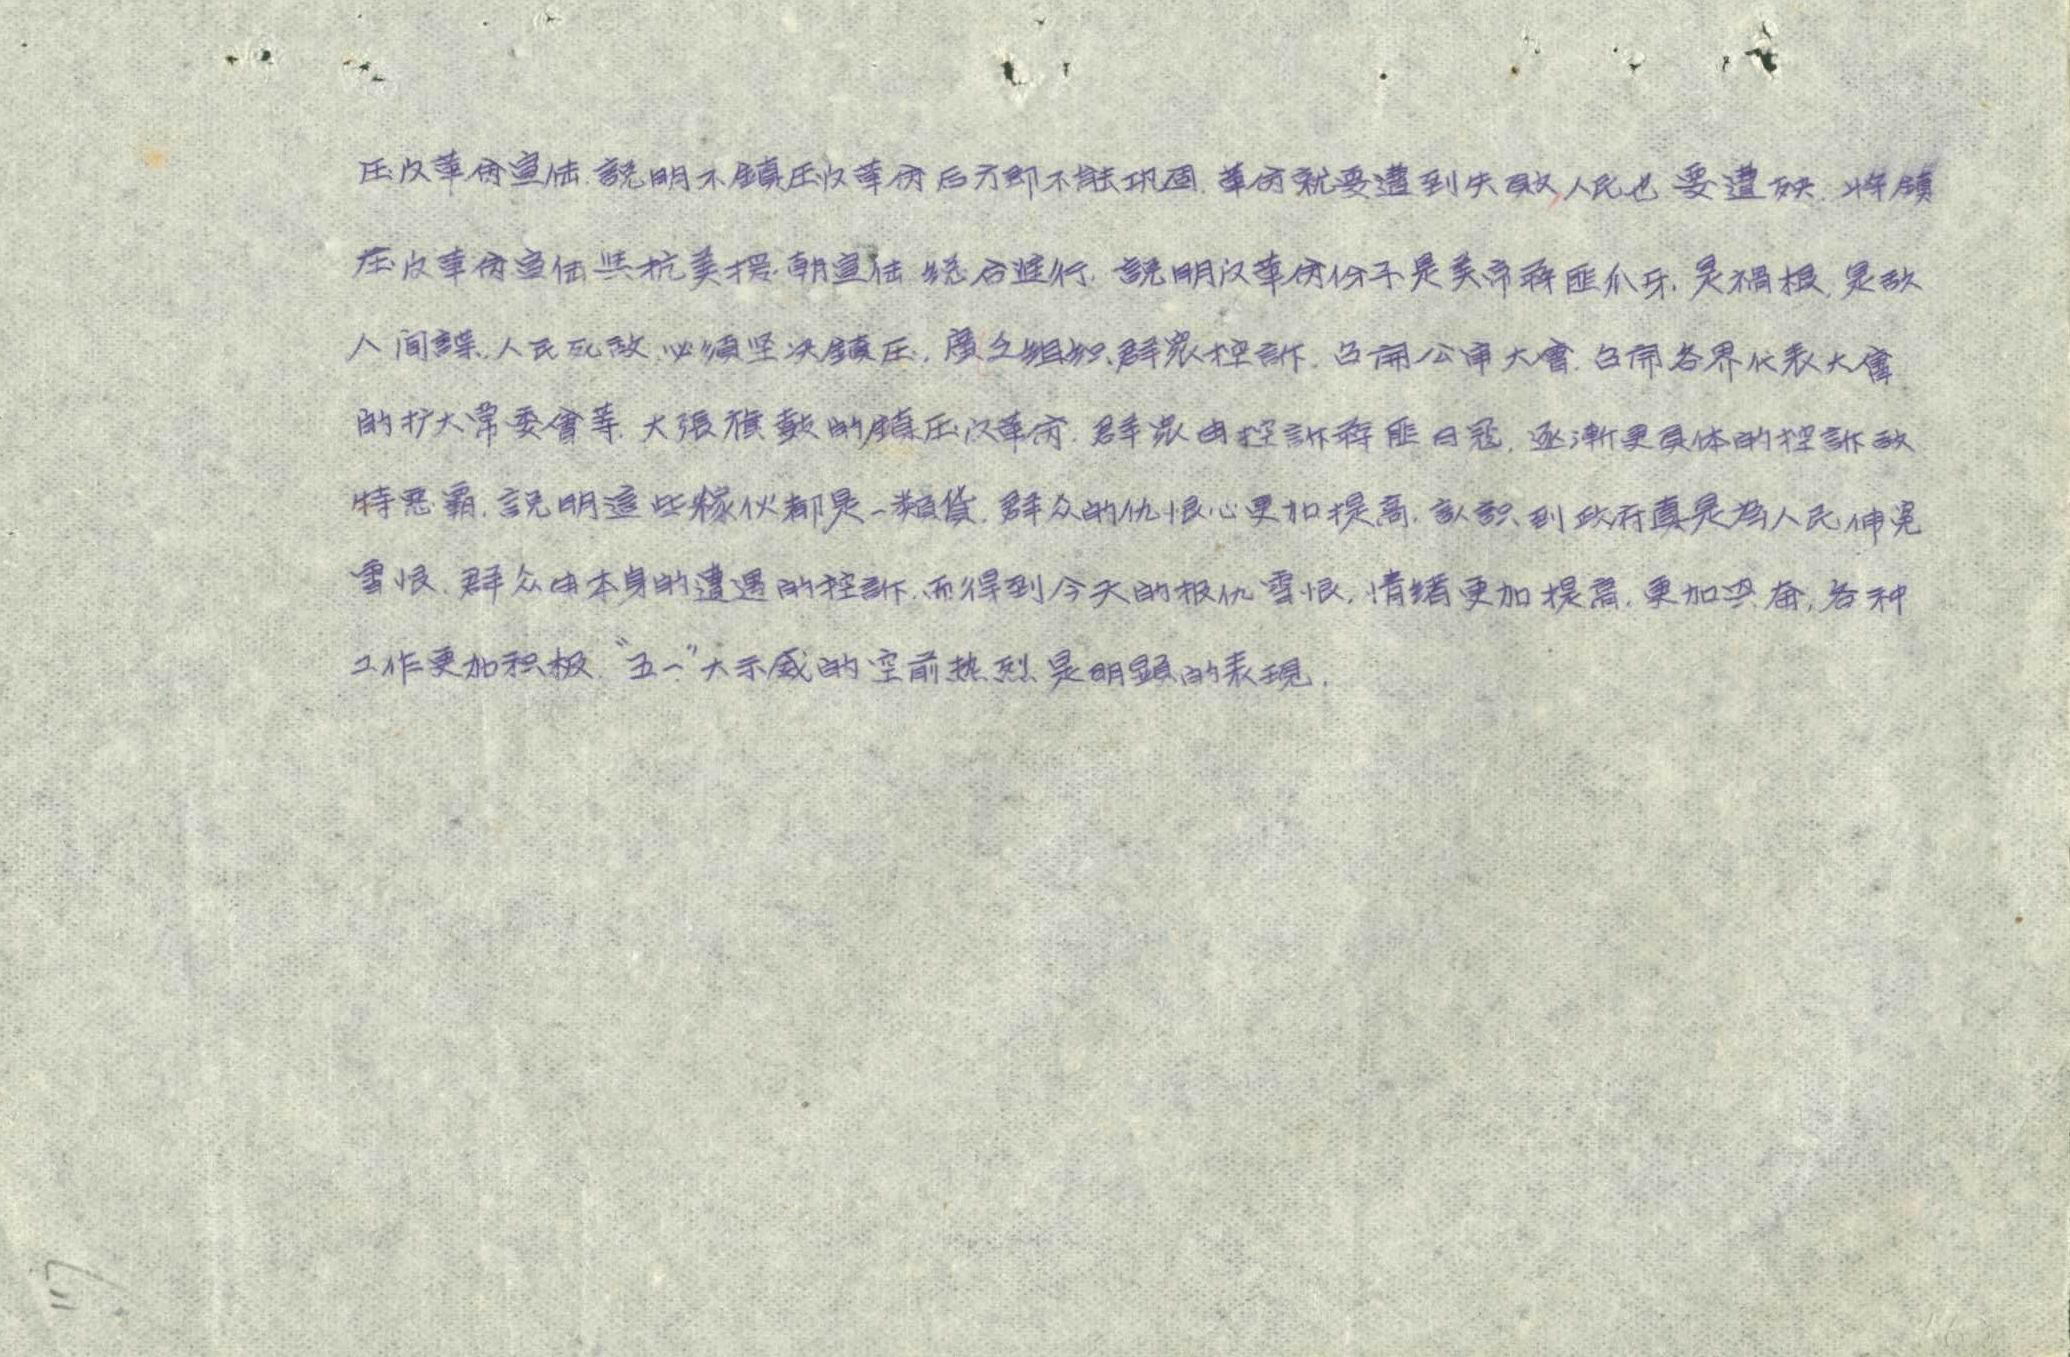 压反革命宣传.説明不鎮压反革命后方即不能巩固.革命就要遭到失敗,人民也要遭殃.将鎮
压反革命宣传与抗美援朝宣传结合進行.説明反革命份子是美帝蒋匪爪牙.是禍根,是敌
人间諜.人民死敌.必須坚决鎮压.廣乏组织群衆控訴.召開公审大會.召開各界代表大會
的扩大常委會等.大張旗鼓的鎮压反革命.群衆由控訴蒋匪日冠,逐漸更具体的控訴敌
特恶霸.説明這些稼伙都是一類貨.群众的仇恨心更加提高.認識到政府真是為人民伸冤
雪恨.群众由本身的遭遇的控訴.而得到今天的报仇雪恨,情绪更加提高.更加兴奋,各种
工作更加积极."五一"大示威的空前热烈是明顕的表現.